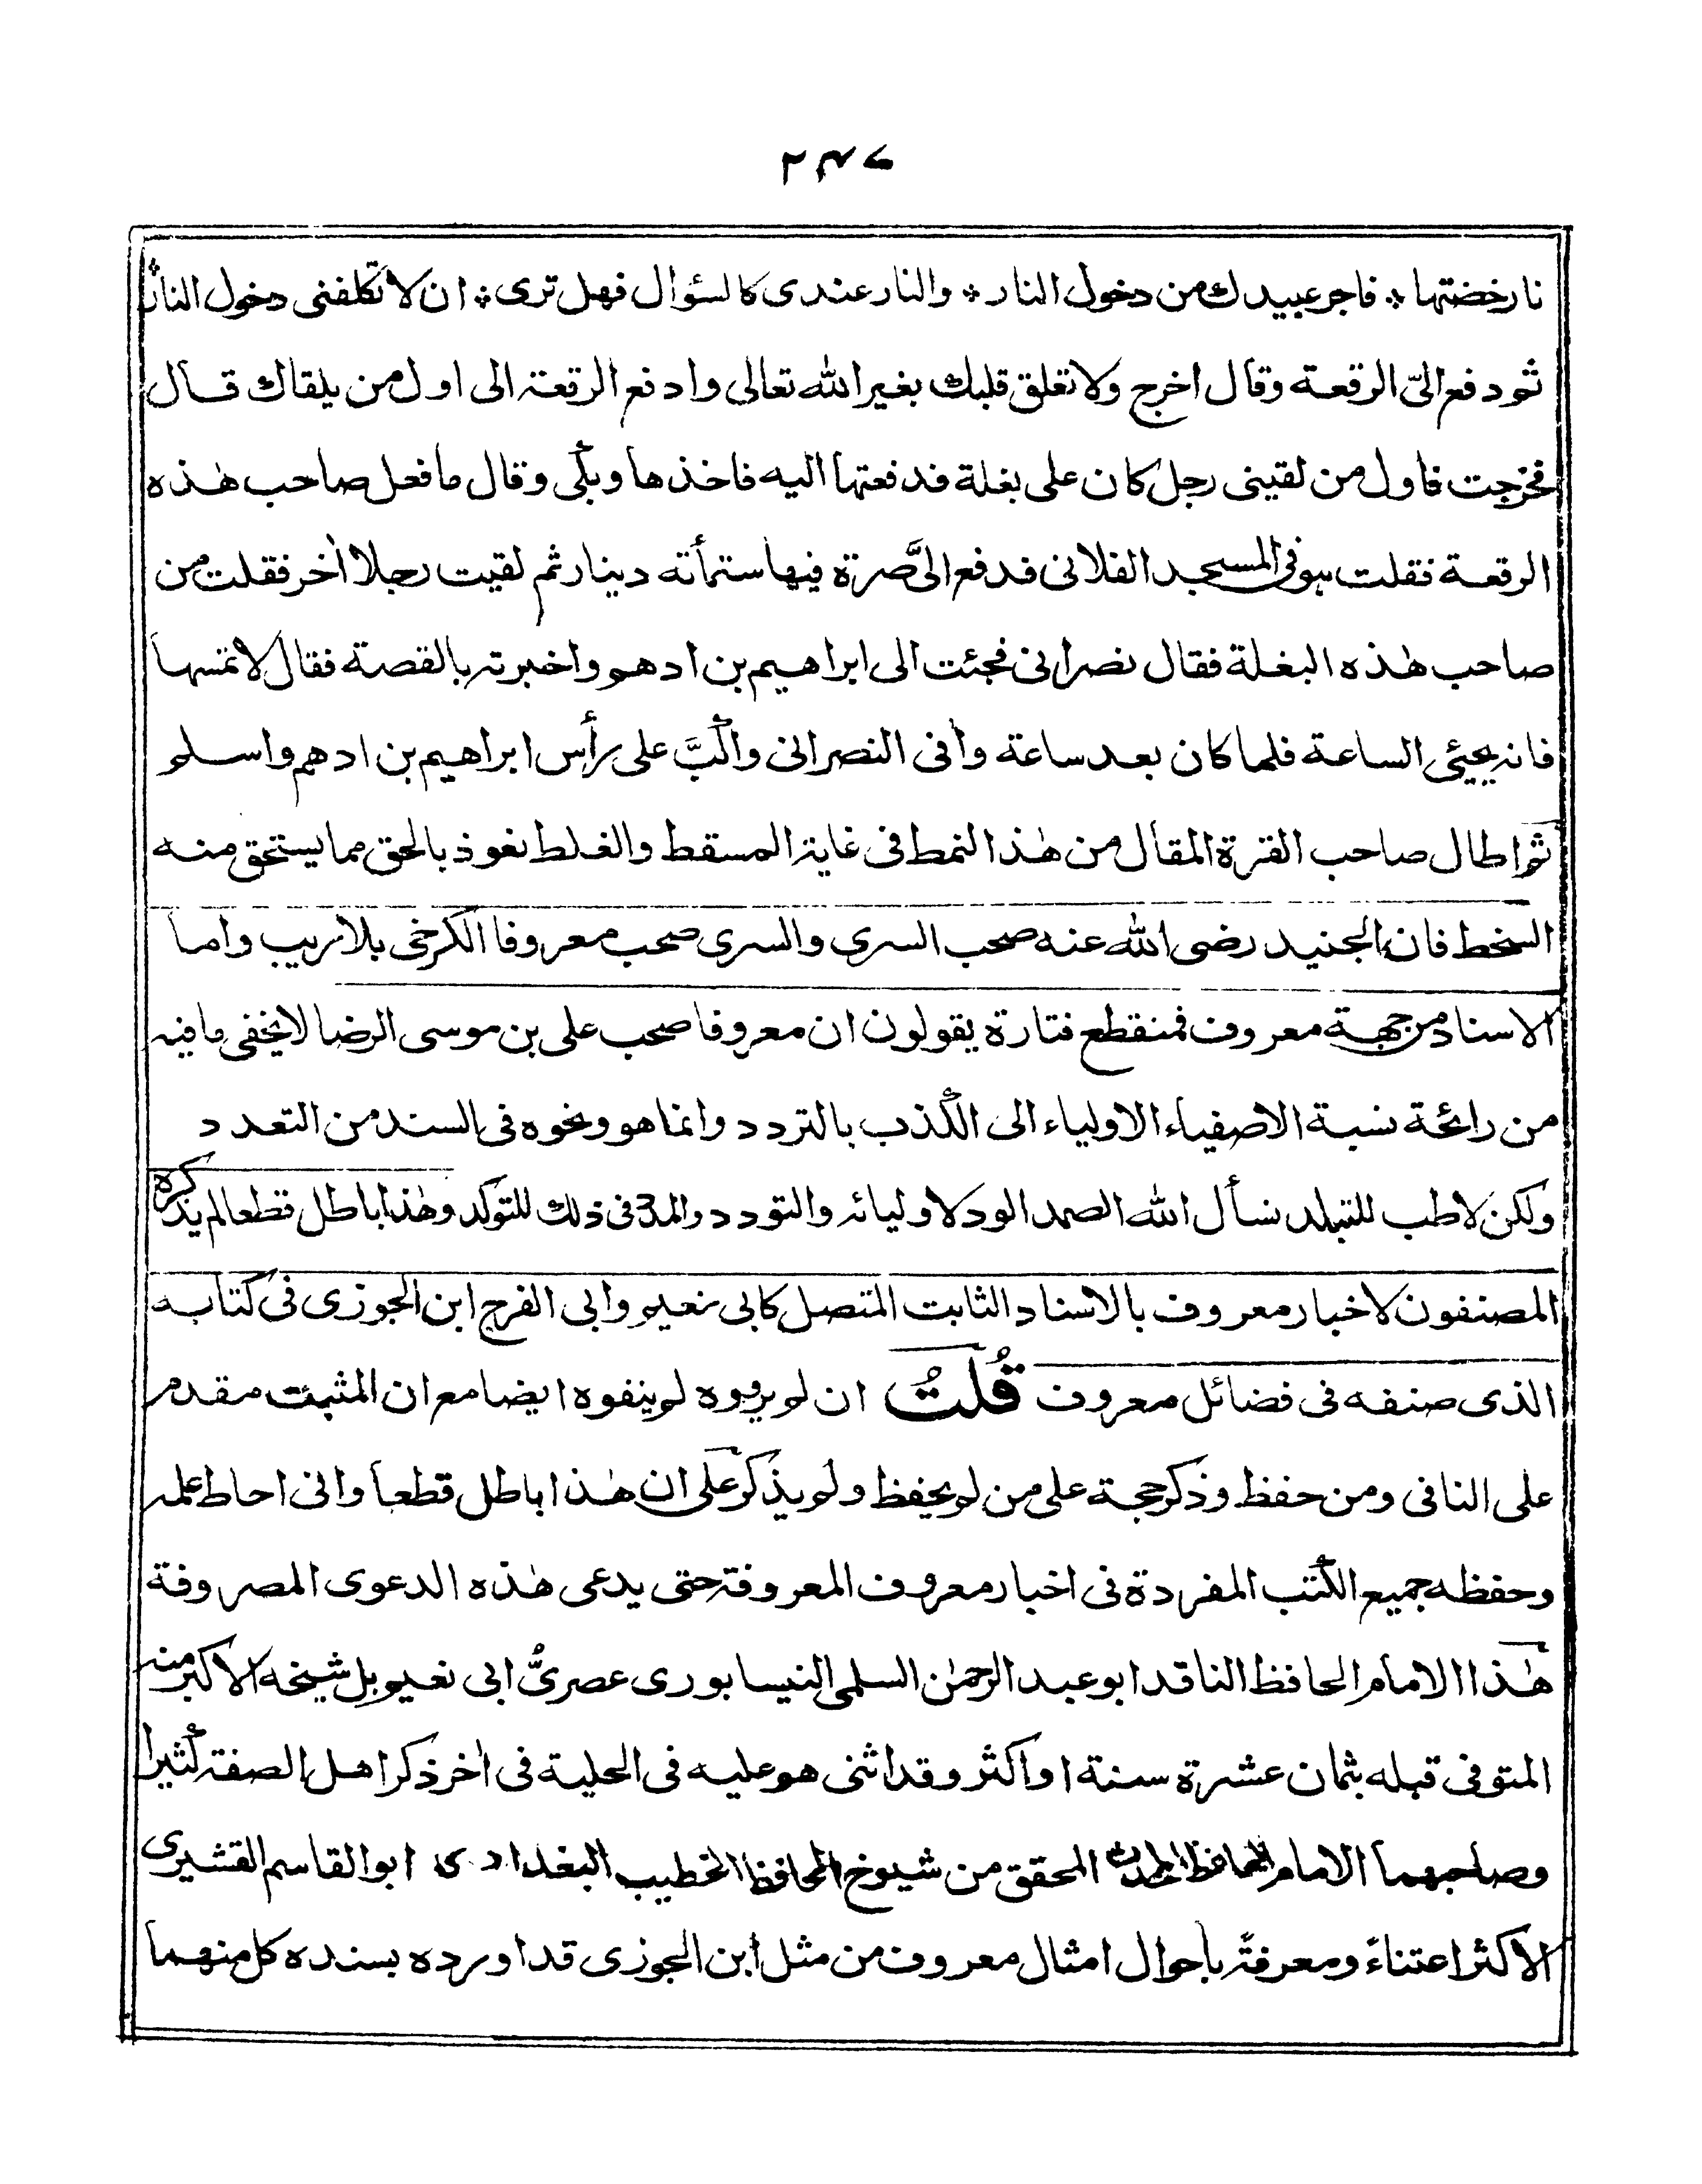 ۲۴۷
نار خضتها ؞ فاجر عبيدك من دخول النار ؞ والنار عندى كالسؤال فهل ترى ؞ ان لا تكلفنى دخول النار ؞
ثم دفع الىّ الرقعة وقال اخرج ولا تعلق قلبك بغير الله تعالى وادفع الرقعة الى اول من يلقاك قال
فخرجت فاول من لقينى رجل كان على بغلة فدفعتها اليه فاخذها وبكى وقال ما فعل صاحب هٰذه
الرقعة فقلت هو فى المسجد الفلانى فدفع الىَّ صرة فيها ستمأته دينار ثم لقيت رجلا اٰخر فقلت من
صاحب هٰذه البغلة فقال نصرانى فجئت الى ابراهيم بن ادهم واخبرته بالقصة فقال لا تمسها
فانه يجيئ الساعة فلما كان بعد ساعة وافى النصرانى واكبَّ على رأس ابراهيم بن ادهم واسلم
ثم اطال صاحب القرة المقال من هٰذا النمط فى غاية المسقط والغلط نعوذ بالحق مما يستحق منه
السخط فان الجنيد رضى الله عنه صحب السرى والسرى صحب معروفا الكرخى بلا ريب واما
الاسناد من جهة معروف فمنقطع فتارة يقولون ان معروفا صحب على بن موسى الرضا لا يخفى ما فيه
من رائحة نسبة الاصفياء الاولياء الى الكذب بالتردد وانما هو ونحوه فى السند من التعدد
ولكن لا طب للتبلد نسأل الله الصمد الود لاوليائه والتودد والمدد فى ذلك للتوكد وهٰذا باطل قطعا لم يذكره
المصنفون لاخبار معروف بالاسناد الثابت المتصل كابى نعيم وابى الفرج ابن الجوزى فى كتابه
الذى صنفه فى فضائل معروف قُلتُ ان لم يرووه لم ينفوه ايضا مع ان المثبت مقدم
على النافى ومن حفظ وذكر حجة على من لم يحفظ ولم يذكر على ان هٰذا باطل قطعاً وانى احاط علمه
وحفظه جميع الكتب المفردة فى اخبار معروف المعروفة حتى يدعى هٰذه الدعوى المصروفة
هٰذا الامام الحافظ الناقد ابو عبد الرحمٰن السلمى النيسابورى عصرىُّ ابى نعيم بل شيخه الاكبر منه
المتوفى قبله بثمان عشرة سنة او اكثر وقد اثنى هو عليه فى الحلية فى اٰخر ذكر اهل الصفة كثيرا
وصاحبهما الامام الحافظ المحدث المحقق من شيوخ الحافظ الخطيب البغدادى ابو القاسم القشيرى
الاكثر اعتناءً ومعرفةً باحوال امثال معروف من مثل ابن الجوزى قد اورده بسنده كل منهما